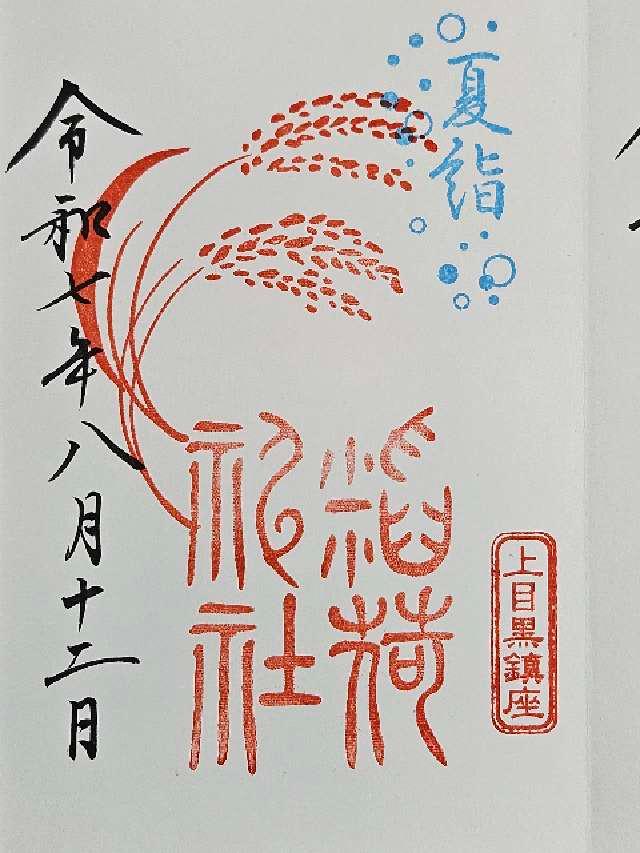 夏詣
上目黒鎮座
稲荷
神社
令和七年八月十二日